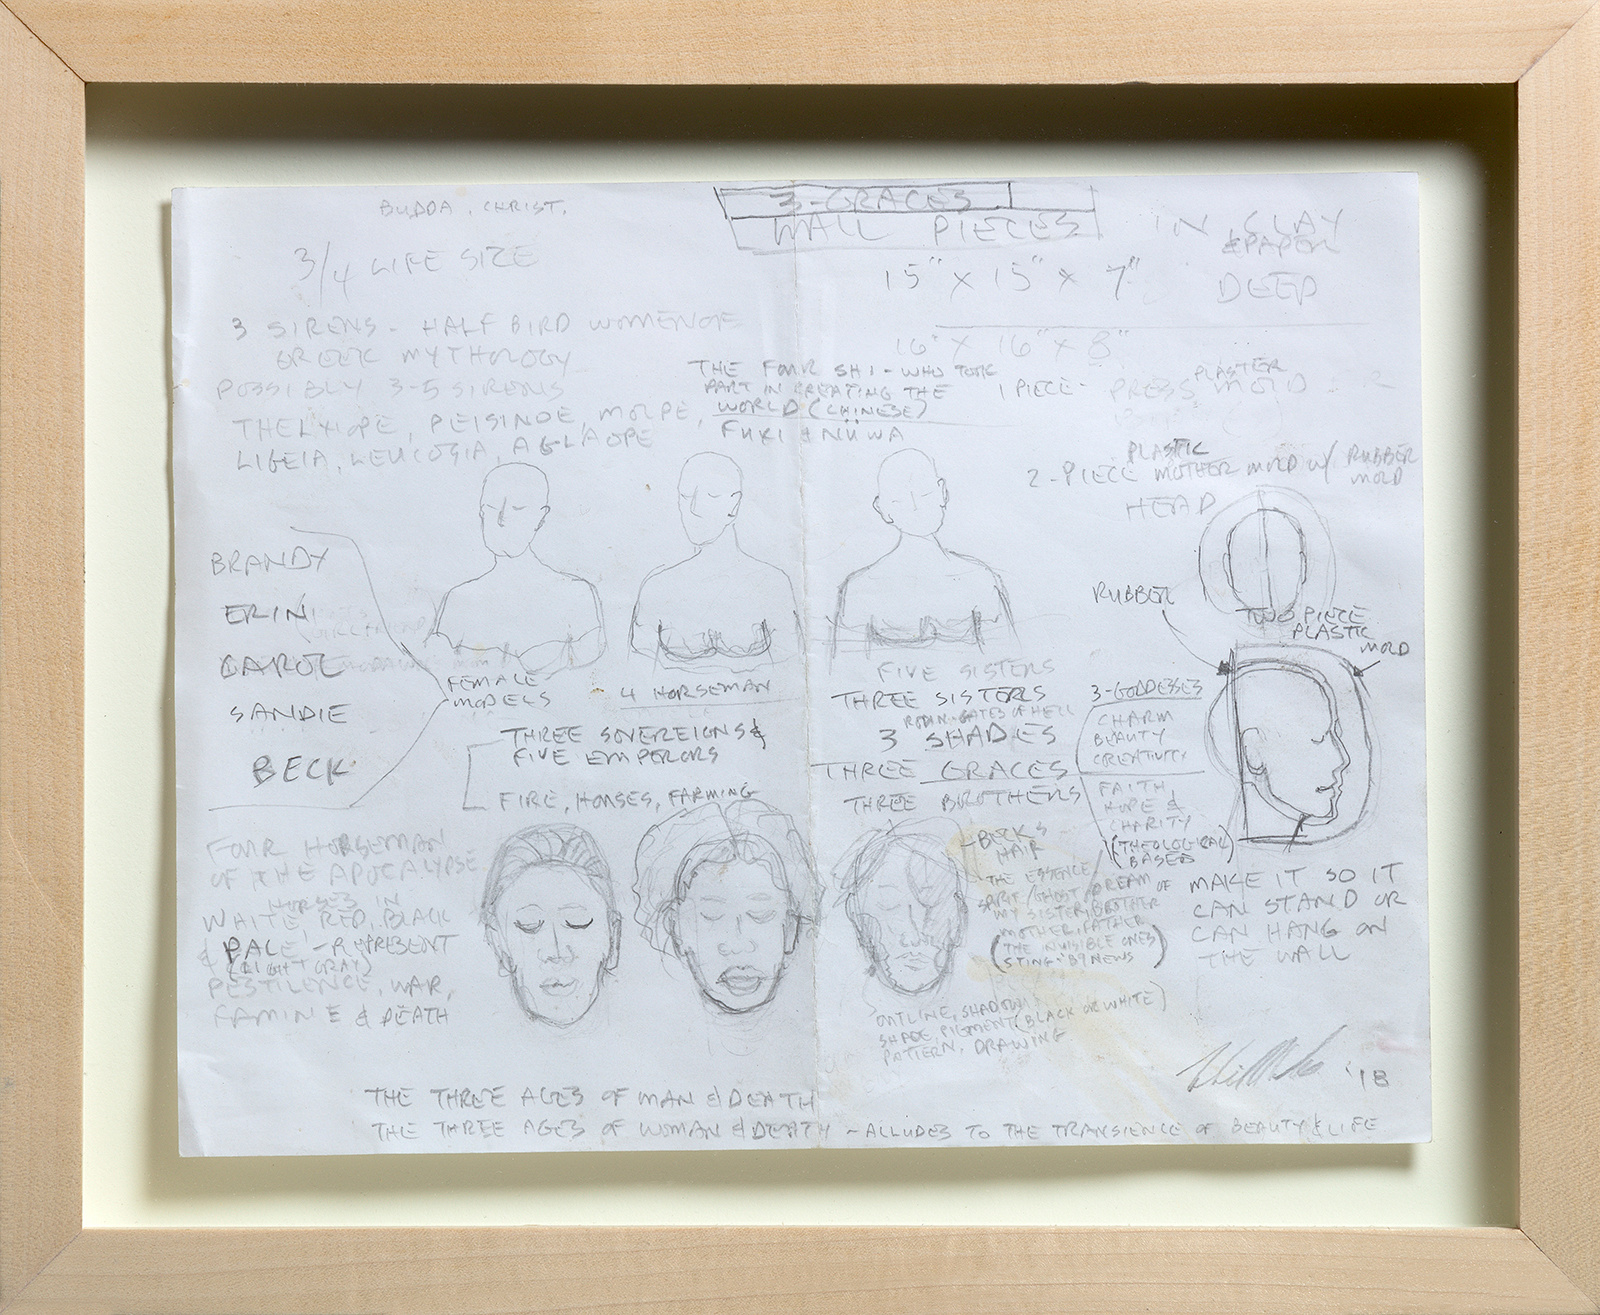 BUDDA, CHRIST,
3-GRACES
WALL PIECES
IN CLAY
& PAPER
3/4 LIFE SIZE
15" X 15" X 7" DEEP
3 SIRENS - HALF BIRD WOMEN OF
GREEK MYTHOLOGY
POSSIBLY 3-5 SIRENS
THELXIOPE, PEISINOE, MOLPE,
LIGEIA, LEUCOSIA, AGLAOPE
16" X 16" X 8"
THE FOUR SHI - WHO TOOK
PART IN CREATING THE
WORLD (CHINESE)
FUXI & NÜWA
1 PIECE - PRESS PLASTER MOLD
PLASTIC
2-PIECE MOTHER MOLD W/ RUBBER
MOLD
HEAD
BRANDY
ERIN
CAROL
SANDIE
BECK
FEMALE
MODELS
4 HORSEMAN
THREE SOVEREIGNS &
FIVE EMPERORS
FIRE, HOUSES, FARMING
FIVE SISTERS
THREE SISTERS
RODIN-GATES OF HELL
3 SHADES
THREE GRACES
THREE BROTHERS
RUBBER
TWO PIECE
PLASTIC
MOLD
3-GODDESSES
CHARM
BEAUTY
CREATIVITY
FAITH,
HOPE &
CHARITY
(THEOLOGICAL)
BASED
FOUR HORSEMAN
OF THE APOCALYPSE
HORSES IN
WHITE, RED, BLACK
& PALE - REPRESENT
(LIGHT GRAY)
PESTILENCE, WAR,
FAMINE & DEATH
BECK'S
HAIR
THE ESSENCE/
SPIRIT/GHOST/DREAM OF
MY SISTER, BROTHER
MOTHER, FATHER
(THE INVISIBLE ONES)
STING-'89 NEWS
MAKE IT SO IT
CAN STAND OR
CAN HANG ON
THE WALL
OUTLINE, SHADOW
SHAPE, PIGMENT (BLACK OR WHITE)
PATTERN, DRAWING
'18
THE THREE AGES OF MAN & DEATH
THE THREE AGES OF WOMAN & DEATH - ALLUDES TO THE TRANSIENCE OF BEAUTY & LIFE